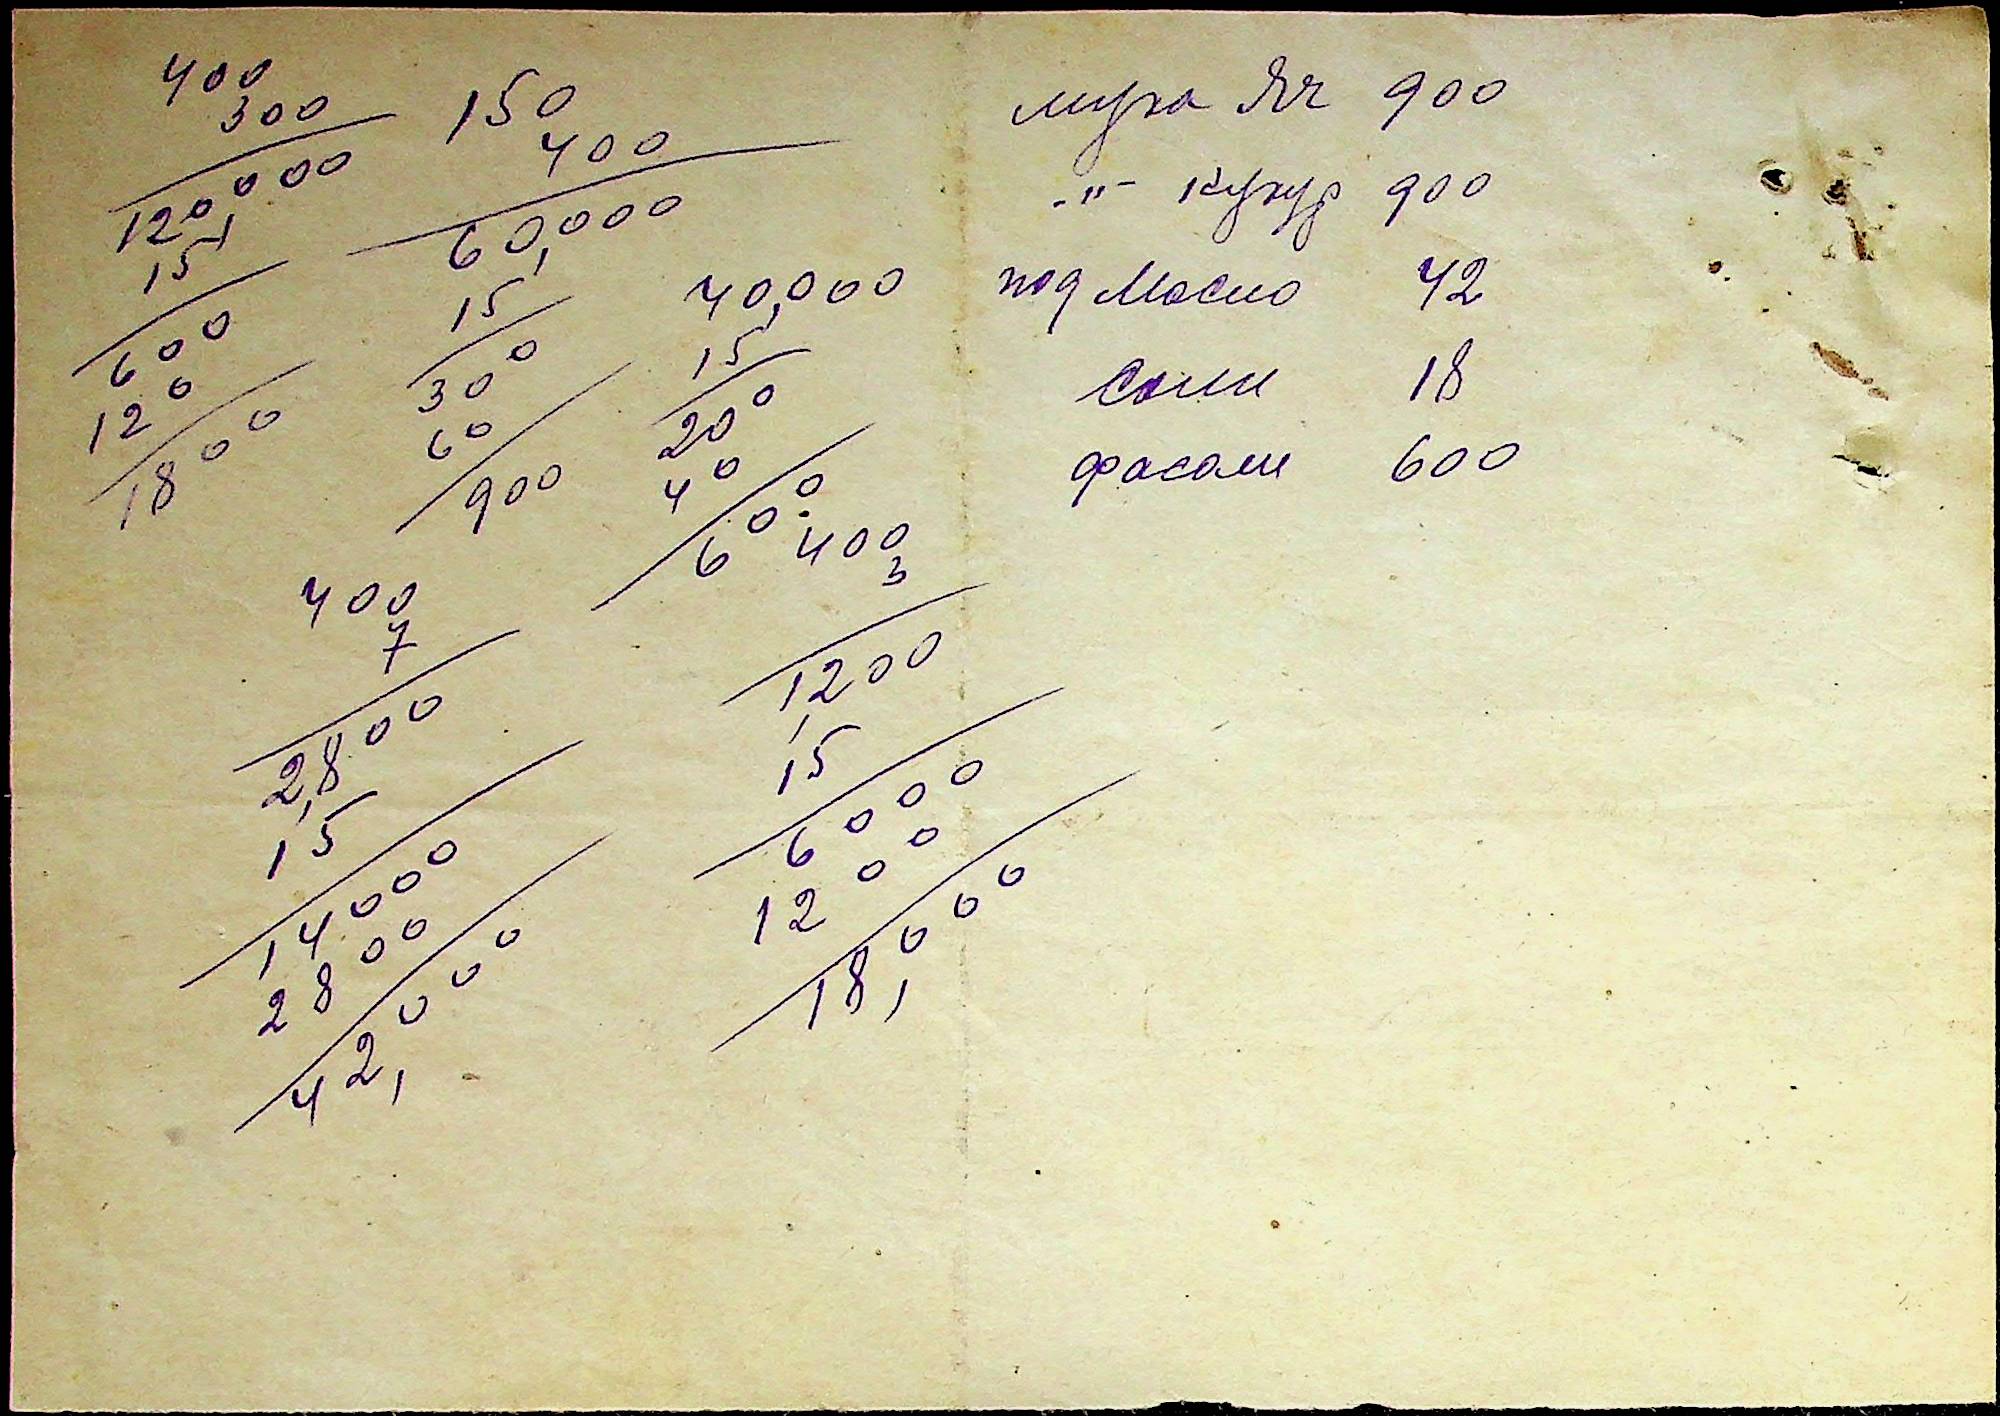 400
300
120000
15
600
120
1800
150
400
60,000
15
300
60
900
40,000
15
200
40
600
400
7
2,800
15
14000
2800
42,000
400
3
1200
15
6000
1200
18,000
мука Яч 900
-"- кукур 900
под Масло 42
Соли 18
фасоли 600